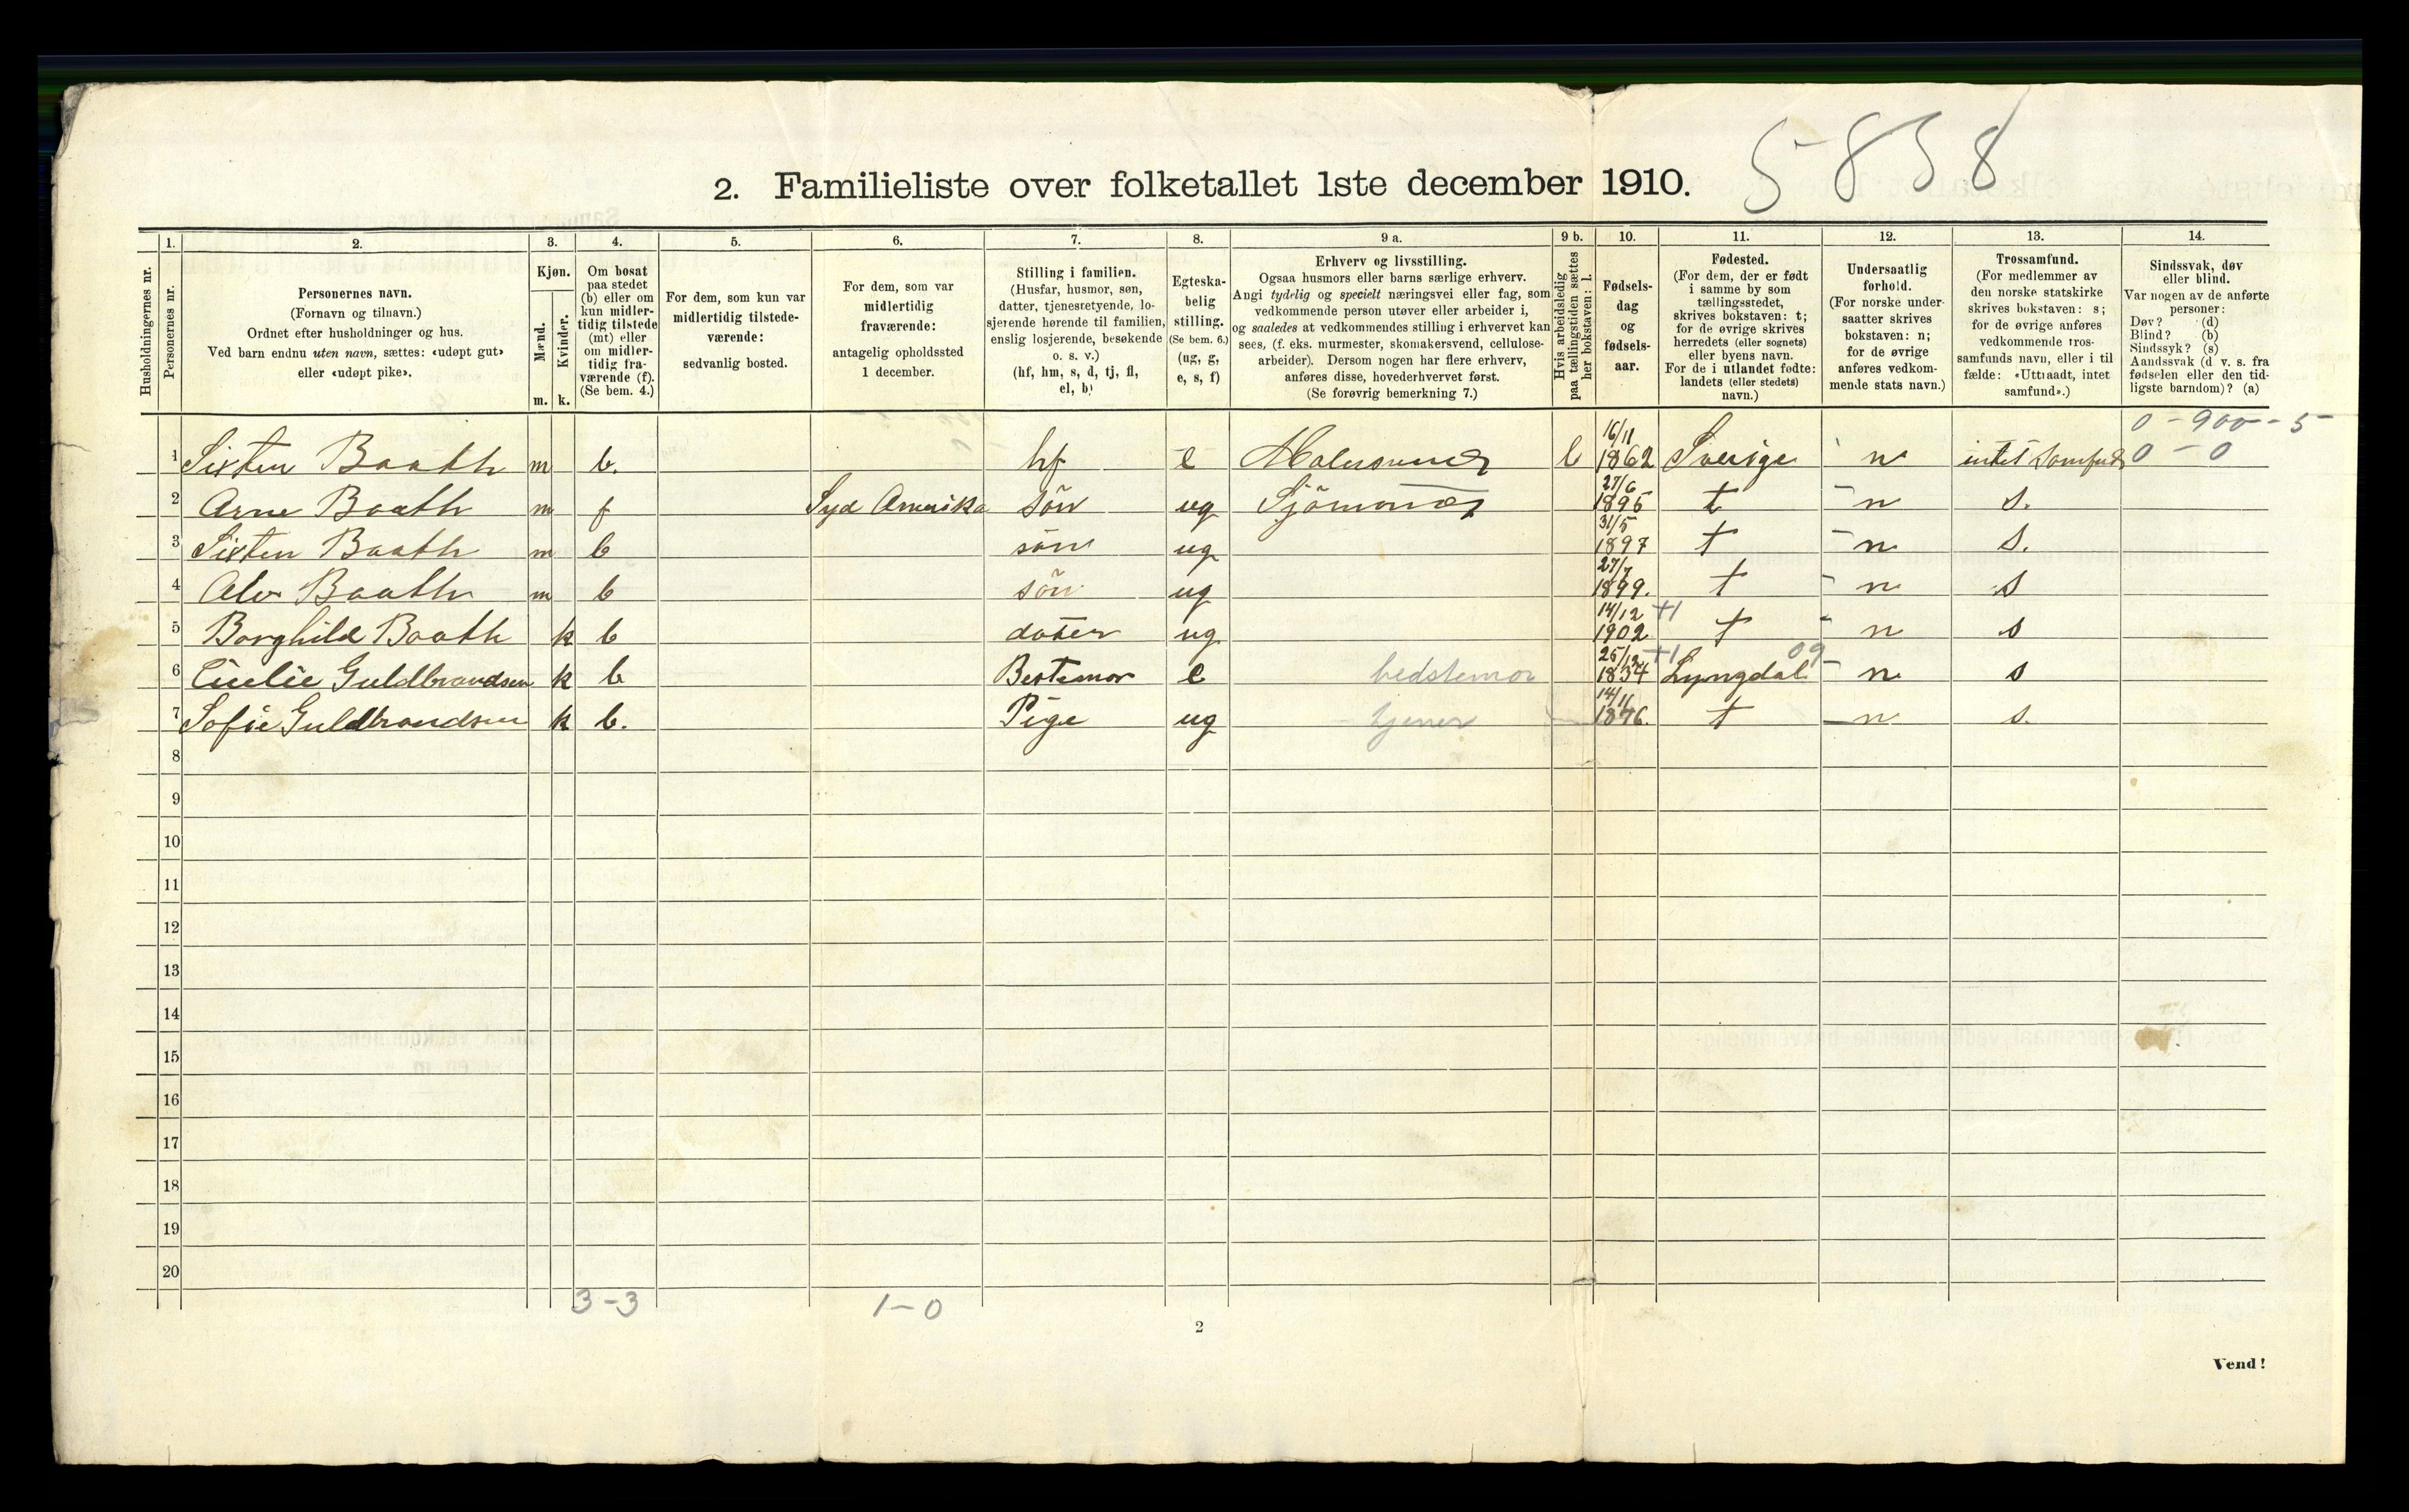 5858
2. Familieliste over folketallet 1ste december 1910.
Husholdningernes nr.
1. Personernes nr.
2. Personernes navn. (Fornavn og tilnavn.) Ordnet efter husholdninger og hus. Ved barn endnu uten navn, sættes: «udøpt gut» eller «udøpt pike».
3. Kjøn. Mænd. m. Kvinder. k.
4. Om bosat paa stedet (b) eller om kun midlertidig tilstede (mt) eller om midlertidig fraværende (f). (Se bem. 4.)
5. For dem, som kun var midlertidig tilstedeværende: sedvanlig bosted.
6. For dem, som var midlertidig fraværende: antagelig opholdssted 1 december.
7. Stilling i familien. (Husfar, husmor, søn, datter, tjenestetyende, losjerende hørende til familien, enslig losjerende, besøkende o. s. v.) (hf, hm, s, d, tj, fl, el, b)
8. Egteskabelig stilling. (Se bem. 6.) (ug, g, e, s, f)
9 a. Erhverv og livsstilling. Ogsaa husmors eller barns særlige erhverv. Angi tydelig og specielt næringsvei eller fag, som vedkommende person utøver eller arbeider i, og saaledes at vedkommendes stilling i erhvervet kan sees, (f. eks. murmester, skomakersvend, cellulosearbeider). Dersom nogen har flere erhverv, anføres disse, hovederhvervet først. (Se forøvrig bemerkning 7.)
9 b. Hvis arbeidsledig paa tællingstiden sættes her bokstaven: l.
10. Fødselsdag og fødselsaar.
11. Fødested. (For dem, der er født i samme by som tællingsstedet, skrives bokstaven: t; for de øvrige skrives herredets (eller sognets) eller byens navn. For de i utlandet fødte: landets (eller stedets) navn.)
12. Undersaatlig forhold. (For norske undersaatter skrives bokstaven: n; for de øvrige anføres vedkommende stats navn.)
13. Trossamfund. (For medlemmer av den norske statskirke skrives bokstaven: s; for de øvrige anføres vedkommende trossamfunds navn, eller i tilfælde: «Uttraadt, intet samfund».)
14. Sindssvak, døv eller blind. Var nogen av de anførte personer: Døv? (d) Blind? (b) Sindssyk? (s) Aandssvak (d. v. s. fra fødselen eller den tidligste barndom)? (a)
0 - 900 - 5
1 Sixten Baath m b. hf e Malersvend l 16/11 1862 Sverige n intet Samfund 0 - 0
2 Arne Baath m f Syd Amerika sön ug Sjömand 27/6 1895 t - n s.
3 Sixten Baath m b sön ug 31/5 1897 t - n s.
4 Alv Baath m b sön ug 27/7 1899. t - n s
5 Borghild Baath k b datter ug 14/12 1902 +1 t - n s
6 Cicilie Guldbrandsen k b Bestemor e bedstemor 25/12 1834 +1 Lyngdal 09 - n s
7 Sofie Guldbrandsen k b. Pige ug tjener 14/11 1876. t - n s.
8
9
10
11
12
13
14
15
16
17
18
19
20
3 - 3 1 - 0
2
Vend!